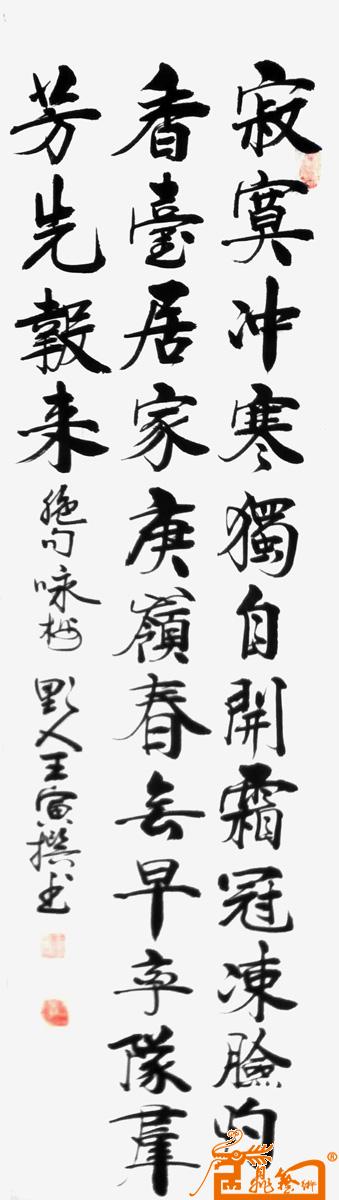 寂寞冲寒獨自開霜冠凍臉
香臺居家庾嶺春無早率隊羣
芳先報来
絶句咏梅 野人王寅撰书